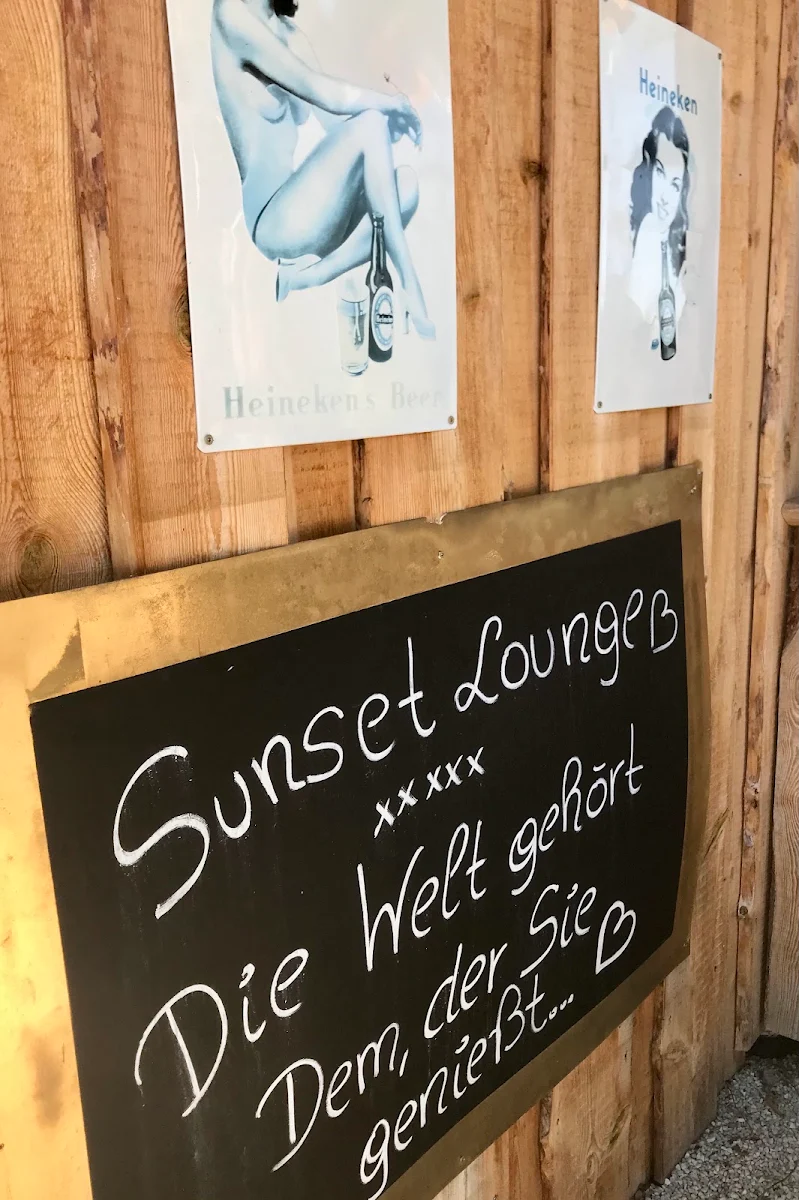 Heineken's Beer
Heineken
Sunset Lounge
xxxxx
Die Welt gehört
Dem, der Sie
genießt...